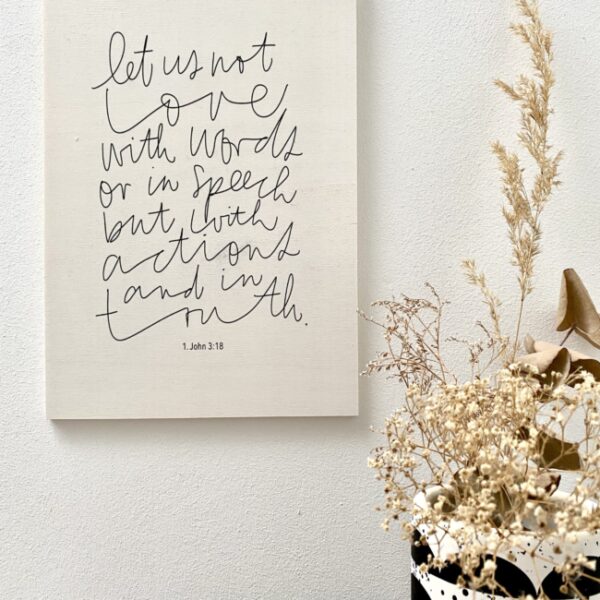 let us not
love
with words
or in speech
but with
actions
and in
truth.
1. John 3:18